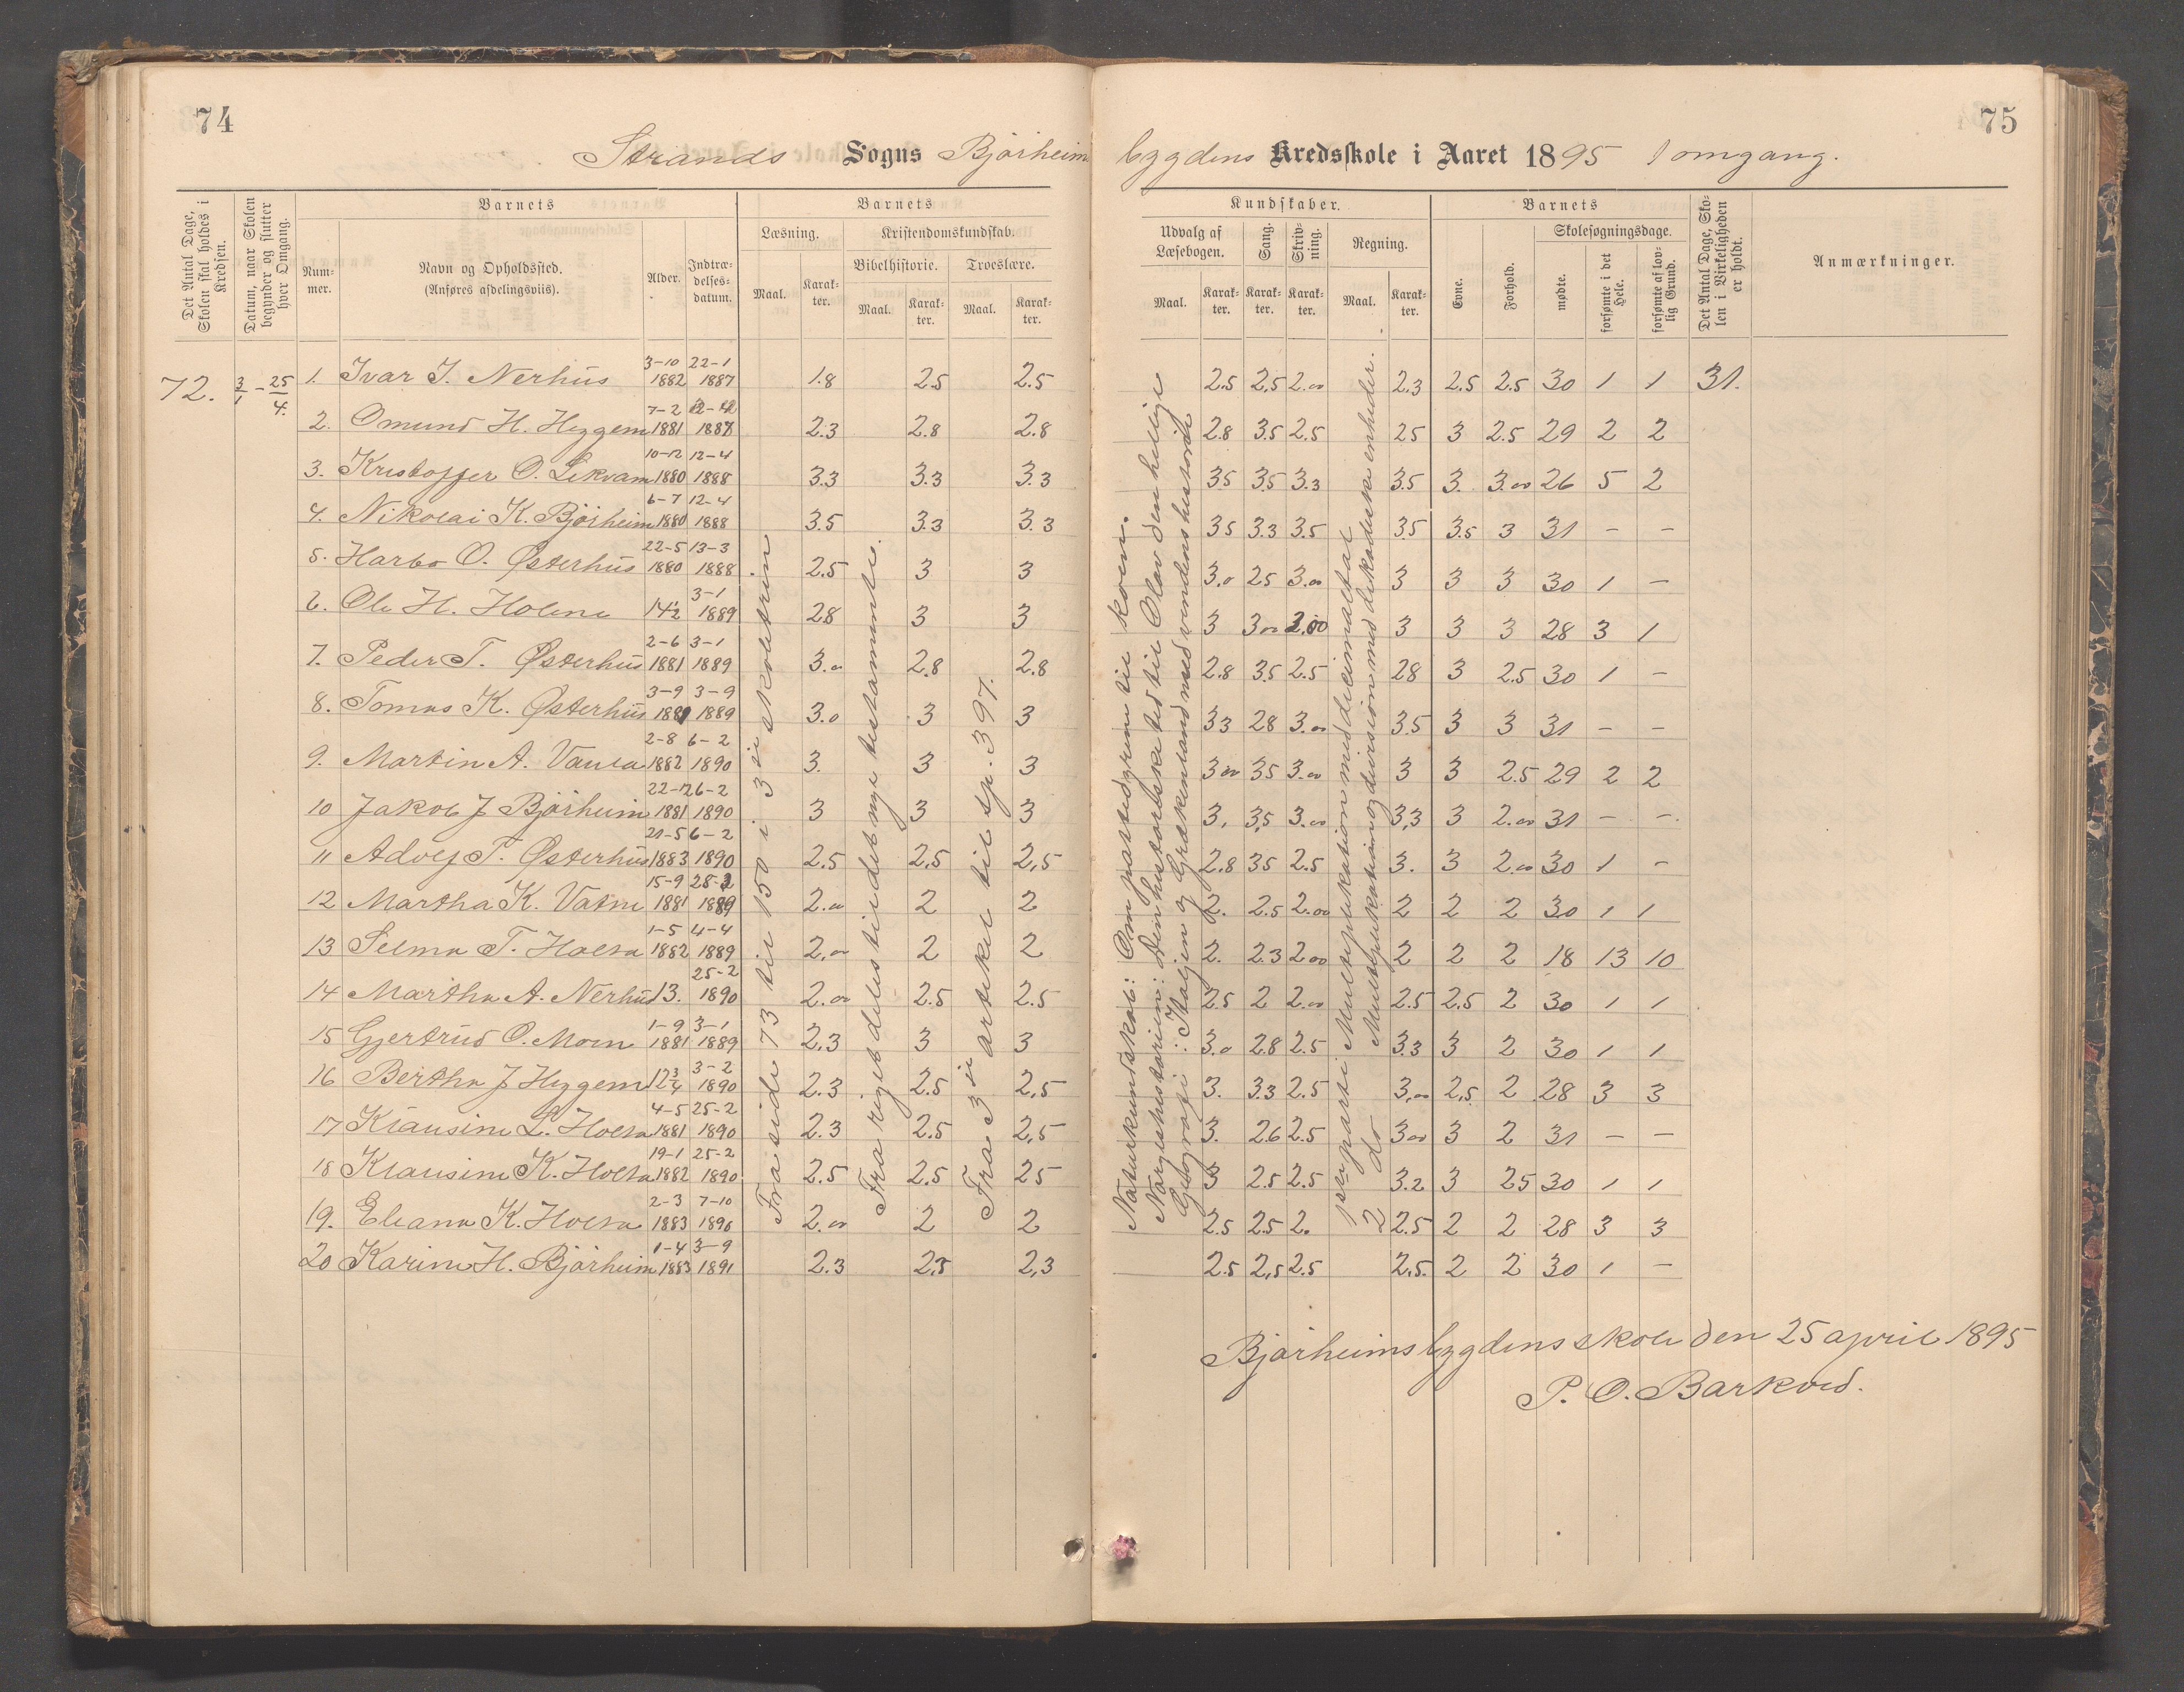 74
Strands Sogns Bjørheim
Det Antal Dage, Skolen skal holdes i Kredsen.
Datum, naar Skolen begynder og slutter hver Omgang.
Barnets
Barnets
Nummer.
Navn og Opholdssted. (Anføres afdelingsviis).
Alder.
Indtrædelsesdatum.
Læsning.
Kristendomskundskab.
Bibelhistorie.
Troeslære.
Maal.
Karakter.
Maal.
Karakter.
Maal.
Karakter.
72. 3/1 - 25/4.
1. Ivar J. Nerhus 3-10 1882 22-1 1887 1.8 2.5 2.5
2. Omund H. Heggem 7-2 1881 1887 2.3 2.8 2.8
3. Kristoffer O. Lekvam 10-12 1880 12-4 1888 3.3 3.3 3.3
4. Nikolai K. Bjørheim 6-7 1880 12-4 1888 3.5 3.3 3.3
5. Harbo O. Østerhus 22-5 1880 13-3 1888 2.5 3 3
6. Ole H. Holene 14 1/2 3-1 1889 2.8 3 3
7. Peder T. Østerhus 2-6 1881 3-1 1889 3.0 2.8 2.8
8. Tomas K. Østerhus 3-9 1881 3-9 1889 3.0 3 3
9. Martin A. Vaula 2-8 1882 6-2 1890 3. 3 3
10 Jakob J Bjørheim 22-12 1881 6-2 1890 3 3 3
11 Adolf T. Østerhus 21-5 1883 6-2 1890 2.5 2.5 2,5
12 Martha K. Vatne 15-9 1881 28-2 1889 2.00 2 2
13 Selma T. Holta 1-5 1882 4-4 1889 2.00 2 2
14 Martha A. Nerhus 13. 25-2 1890 2.00 2.5 2.5
15 Gjertrud O. Moen 1-9 1881 3-1 1889 2.3 3 3
16 Bertha J Heggem 12 3/4 3-2 1890 2.3 2.5 2,5
17 Klausine L. Holta 4-5 1881 25-2 1890 2.3 2.5 2,5
18 Klausine K. Holta 19-1 1882 25-2 1890 2.5 2.5 25
19. Eliana K. Holta 2-3 1883 7-10 1890 2.00 2 2
20 Karine H. Bjørheim 1-4 1883 3-9 1891 2.3 2,5 2,3
Fra side 73 til 150 i 3 die skoletrin
Fra rigets deling til det nye testammente.
Fra 3 die artikel til sp. 397.
75
bygdens Kredsskole i Aaret 1895 1 omgang.
Kundskaber.
Barnets
Udvalg af Læsebogen.
Sang.
Skrivning.
Regning.
Evne.
Forhold.
Skolesøgningsdage.
Maal.
Karakter.
Karakter.
Karakter.
Maal.
Karakter.
mødte.
forsømte i det Hele.
forsømte af lovlig Grund.
Det Antal Dage, Skolen i Virkeligheden er holdt.
Anmærkninger.
2.5 2,5 2.00 2.3 2.5 2.5 30 1 1 31.
2.8 3.5 2.5 25 3 2.5 29 2 2
35 3.5 3.3 3.5 3. 3.00 26 5 2
35 3.3 3.5 3.5 3.5 3 31 - -
3.0 25 3.00 3 3 3 30 1 -
3 3.00 3 3 3 28 3 1
2.8 3.5 2.5 28 3 2.5 30 1 -
33 28 3.00 3.5 3 3 31 - -
3.00 35 3.00 3 3 2.5 29 2 2
3. 3,5 3.00 3,3 3 2.00 31 - -
2.8 35 2.5 3. 3 2.00 30 1 -
2. 2.5 2.00 2 2 2 30 1 1
2. 2.3 2.00 2 2 2 18 13 10
2.5 2 2.00 2.5 2.5 2 30 1 1
3.0 2.8 2.5 3.3 3 2 30 1 1
3. 3.3 2.5 3.00 2,5 2 28 3 3
3. 2.6 2.5 3.00 3 2 31 - -
3 2.5 2.5 3.2 3 25 30 1 1
2.5 2.5 2. 2.5 2 2 28 3 3
2.5 2,5 2.5 2.5. 2 2 30 1 -
Naturkundskab: Om partidyrene til koen.
Norgeshistorien: Den historiske tid til Olav den hellige
Geografi: Italien og Grækenland med verdenshistorie
1ste parti Multiplikation med decimaltal
2 do Multiplikation og division med dekadiske enheder.
Bjørheimsbygdens skole den 25 april 1895
P. O. Barkved.